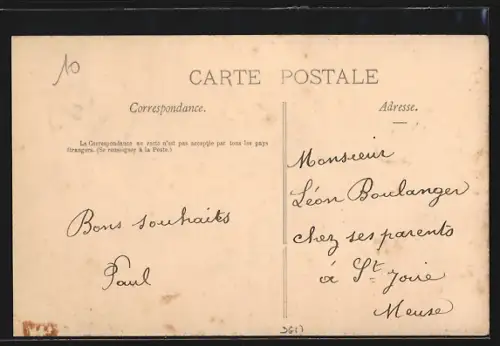 10
CARTE POSTALE
Correspondance.
Adresse.
La Correspondance au recto n'est pas acceptée par tous les pays
étrangers. (Se renseigner à la Poste.)
Monsieur
Léon Boulanger
chez ses parents
à St. Joire
Meuse
Bons souhaits
Paul